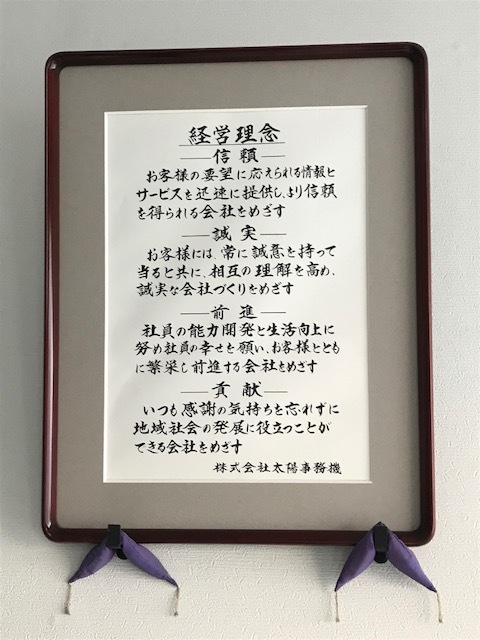 経営理念
―信頼―
お客様の要望に応えられる情報と
サービスを迅速に提供し、より信頼
を得られる会社をめざす
―誠実―
お客様には、常に誠意を持って
当ると共に、相互の理解を高め、
誠実な会社づくりをめざす
―前進―
社員の能力開発と生活向上に
努め社員の幸せを願い、お客様ととも
に繁栄し前進する会社をめざす
―貢献―
いつも感謝の気持ちを忘れずに
地域社会の発展に役立つことが
できる会社をめざす
株式会社太陽事務機